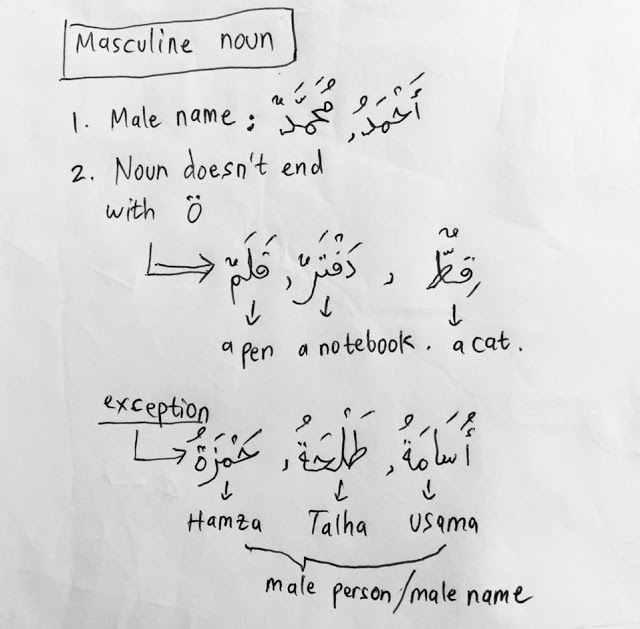 Masculine noun
1. Male name : أَحْمَدُ, مُحَمَّدٌ
2. Noun doesn't end
with ة
قِطٌّ , دَفْتَرٌ, قَلَمٌ
a pen a notebook. a cat.
exception
أُسَامَةُ, طَلْحَةُ, حَمْزَةُ
Hamza Talha Usama
male person/male name